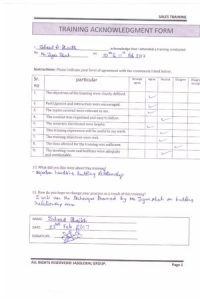 SALES TRAINING
TRAINING ACKNOWLEDGMENT FORM
I acknowledge that I attended a training conducted
by Mr. on Feb 2017
Instructions: Please indicate your level of agreement with the statements listed below.
Sr. no particular Strongly agree Agree Neutral Disagree
1 The objectives of the training were clearly defined.
2 Participation and interaction were encouraged.
3 The topics covered were relevant to me.
4 The content was organized and easy to follow.
5 The materials distributed were helpful.
6 This training experience will be useful in my work.
7 The training objectives were met.
8 The time allotted for the training was sufficient.
9 The meeting room and facilities were adequate and comfortable.
10. What did you like most about this training?
- Objection handling, building relationship
11. How do you hope to change your practice as a result of this training?
I will use the Technique learned by Mr. on building
Relationship
NAME: Shaikh
DATE: Feb 2017
SIGNATURE:
ALL RIGHTS RESERVED GLOBAL GROUP. Page 1